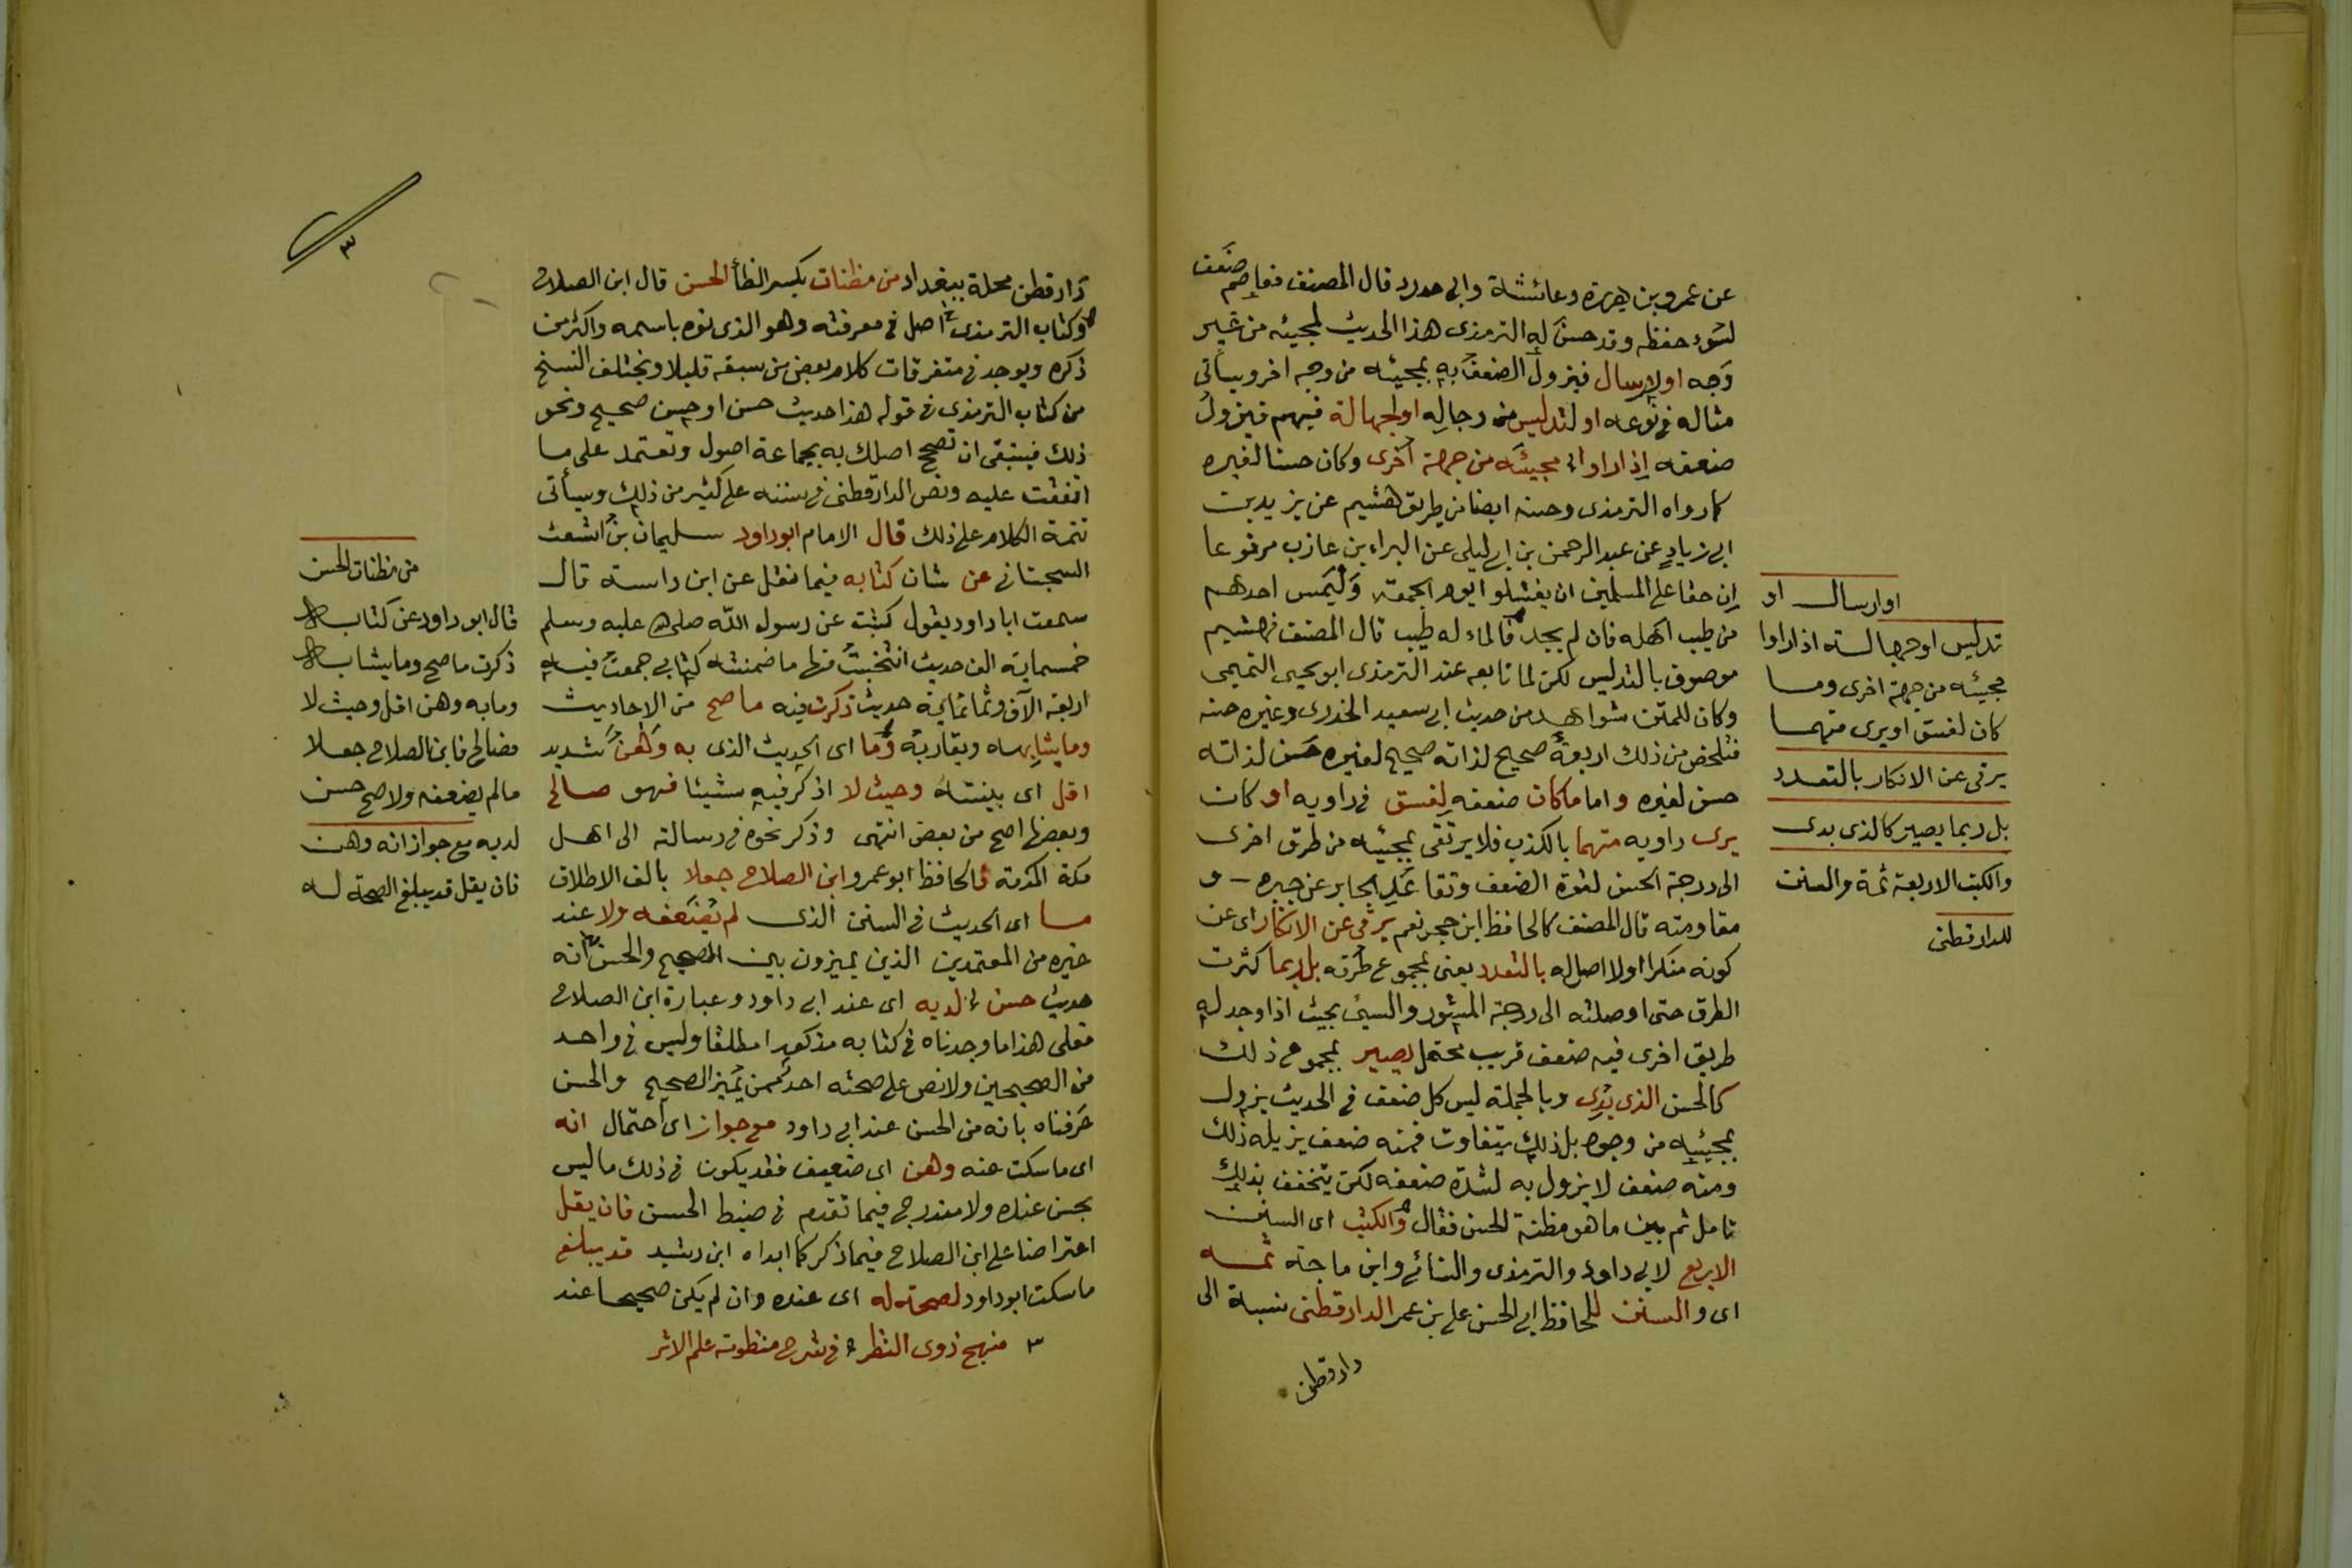 عن عمرو بن هريرة وعائشة وابي حدرد قال المصنف فعاصم ضعف
لسوء حفظه وقد حسن له الترمذى هذا الحديث لمجيئه من غير
وجه اولارسال فيزول الضعف به بمجيئه من وجه اخر وسيأتى
مثاله فى نوعه او لتدليس من رجاله اولجهالة فيهم فيزول
ضعفه إذا راوا اى مجيئه من جهة أخرى وكان حسنا لغيره
كما رواه الترمذى وحسنه ايضا من طريق هشيم عن يزيد بن
ابى زياد عن عبد الرحمن بن ابى ليلى عن البراء بن عازب مرفوعا
إن حقا على المسلمين ان يغتسلوا يوم الجمعة وليمس احدهم
من طيب اهله فان لم يجد فالماء له طيب قال المصنف فهشيم
موصوف بالتدليس لكن لما تابعه عند الترمذى ابو يحيى التيمي
وكان للمتن شواهد من حديث ابى سعيد الخدرى وغيره حسنه
فتلخص من ذلك اربعة صحيح لذاته صحيح لغيره حسن لذاته
حسن لغيره واما ما كان ضعفه لفسق فى راويه او كان
يرى راويه متهما بالكذب فلا يرتقى بمجيئه من طرق اخرى
الى درجة الحسن لقوة الضعف وتقاعد الجابر عن جبره و
مقاومته قال المصنف كالحافظ ابن حجر نعم يرقى عن الانكار اى عن
كونه منكرا اولا اصل له بالتعدد يعنى بمجموع طرقه بل ربما كثرت
الطرق حتى اوصلته الى درجة المستور والسيئ بحيث اذا وجد له
طريق اخرى فيه ضعف قريب محتمل يصير بمجموع ذلك
كالحسن الذى بدى وبالجملة ليس كل ضعف فى الحديث يزول
بمجيئه من وجوه بل ذلك يتفاوت فمنه ضعف يزيله ذلك
ومنه ضعف لا يزول به لشدة ضعفه لكن يتخفف بذلك
تامل ثم بين ما هو مظنة الحسن فقال والكتب اى السنن
الاربع لابى داود والترمذى والنسائى وابن ماجة ثمه
اى والسنن للحافظ ابى الحسن على بن عمر الدارقطنى نسبة الى
دارقطن
اوارسال او
تدليس اوجهالسة اذا راوا
مجيئه من جهة اخرى وما
كان لفسق اويرى متهما
يرقى عن الانكار بالتعدد
بل ربما يصير كالذى بدى
والكتب الاربعة ثمة والسنن
للدارقطنى
٣
دار قطن محلة ببغداد من مظنات بكسر الظأ الحسن قال ابن الصلاح
وكتاب الترمذى اصل فى معرفته وهو الذى نوه باسمه واكثر من
ذكره ويوجد فى متفرقات كلام بعض من سبقه قليلا وتختلف النسخ
من كتاب الترمذى فى قوله هذا حديث حسن او حسن صحيح ونحو
ذلك فينبغى ان تصحح اصلك به بجماعة اصول وتعتمد على ما
اتفقت عليه ونص الدارقطنى فى سننه على كثير من ذلك وسيأتى
تتمة الكلام على ذلك قال الامام ابوداود سليمان بن اشعث
السجستانى عن شان كتابه فيما نقل عن ابن داسة قال
سمعت ابا داود يقول كتبت عن رسول الله صلى الله عليه وسلم
خمسماية الف حديث انتخبت منها ما ضمنته كتابى جمعت فيه
اربعة الآف وثمانماية حديث ذكرت فيه ما صح من الاحاديث
وما يشابهه ويقاربه وما اى الحديث الذى به وهن شديد
اقل اى بينته وحيث لا اذكر فيه شيئا فهو صالح
وبعضها اصح من بعض انتهى وذكر نحوه فى رسالته الى اهل
مكة المكرمة فالحافظ ابو عمرو ابن الصلاح جعلا بالف الاطلاق
ما اى الحديث فى السنن الذى لم يضعفه ولا عند
غيره من المعتمدين الذين يميزون بين الصحيح والحسن انه
حديث حسن لديه اى عند ابى داود وعبارة ابن الصلاح
فعلى هذا ما وجدناه فى كتابه مذكورا مطلقا وليس فى واحد
من الصحيحين ولا نص على صحته احد ممن يميز الصحيح والحسن
عرفناه بانه من الحسن عند ابى داود مع جواز اى احتمال انه
اى ما سكت عنه وهن اى ضعيف فقد يكون فى ذلك ما ليس
بحسن عنده ولا مندرج فيما تقدم فى ضبط الحسن فان يقل
اعتراضا على ابن الصلاح فيما ذكر كما ابداه ابن رشيد قد يبلغ
ما سكت ابو داود لصحة له اى عنده وان لم يكن صحيحا عند
٣ منهج ذوى النظر فى شرح منظومة علم الاثر
من مظنات الحسن
قال ابو داود عن كتابه
ذكرت ما صح وما يشابه
وما به وهن اقل وحيث لا
فصالح فابن الصلاح جعلا
ما لم يضعفه ولا صح حسن
لديه مع جواز انه وهن
فان يقل قد يبلغ الصحة له